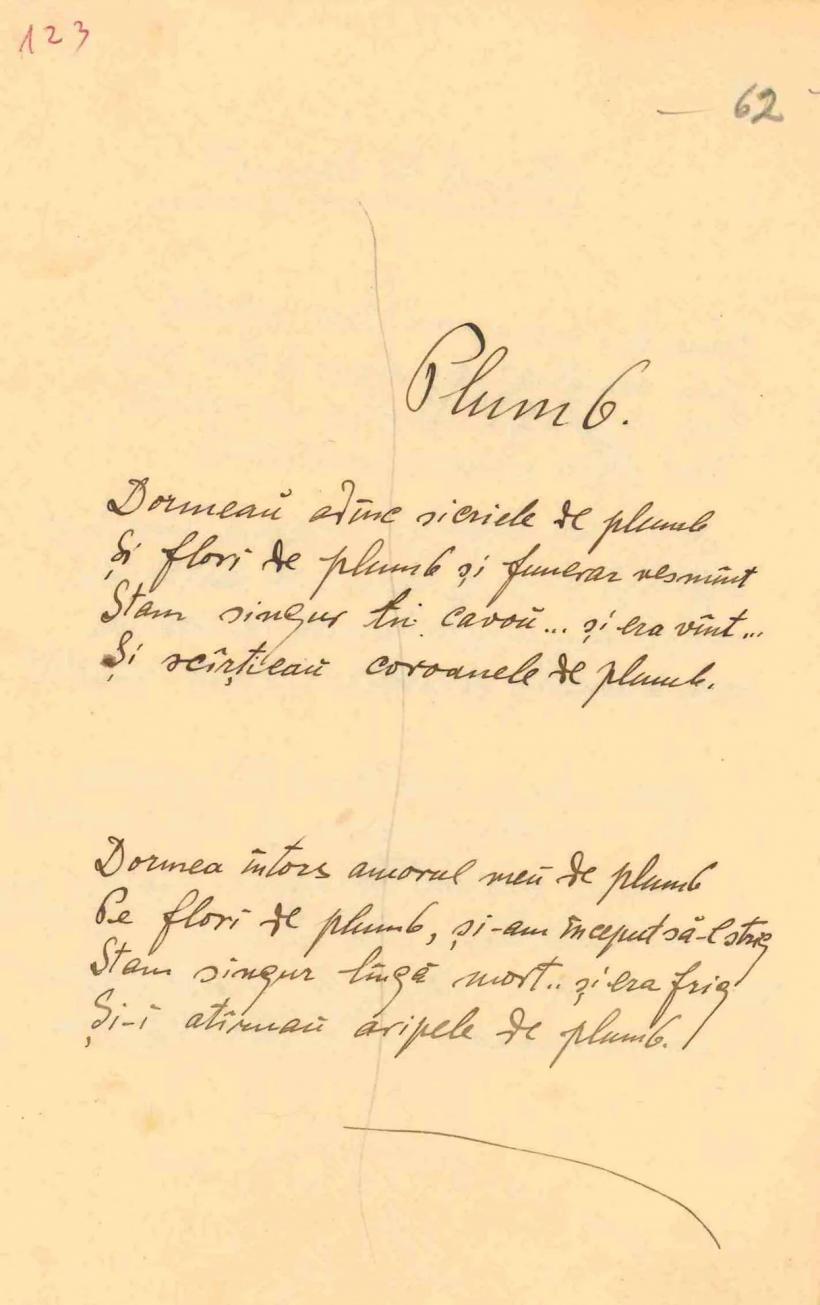 123
62
Plumb.
Dormeaŭ adînc sicriele de plumb
Și flori de plumb și funerar vesmînt
Stam singur în cavoŭ... și era vînt...
Și scîrțieaŭ coroanele de plumb.
Dormea întors amorul meŭ de plumb
Pe flori de plumb, și-am început să-l strig
Stam singur lîngă mort.. și era frig
Și-i atîrnaŭ aripele de plumb.